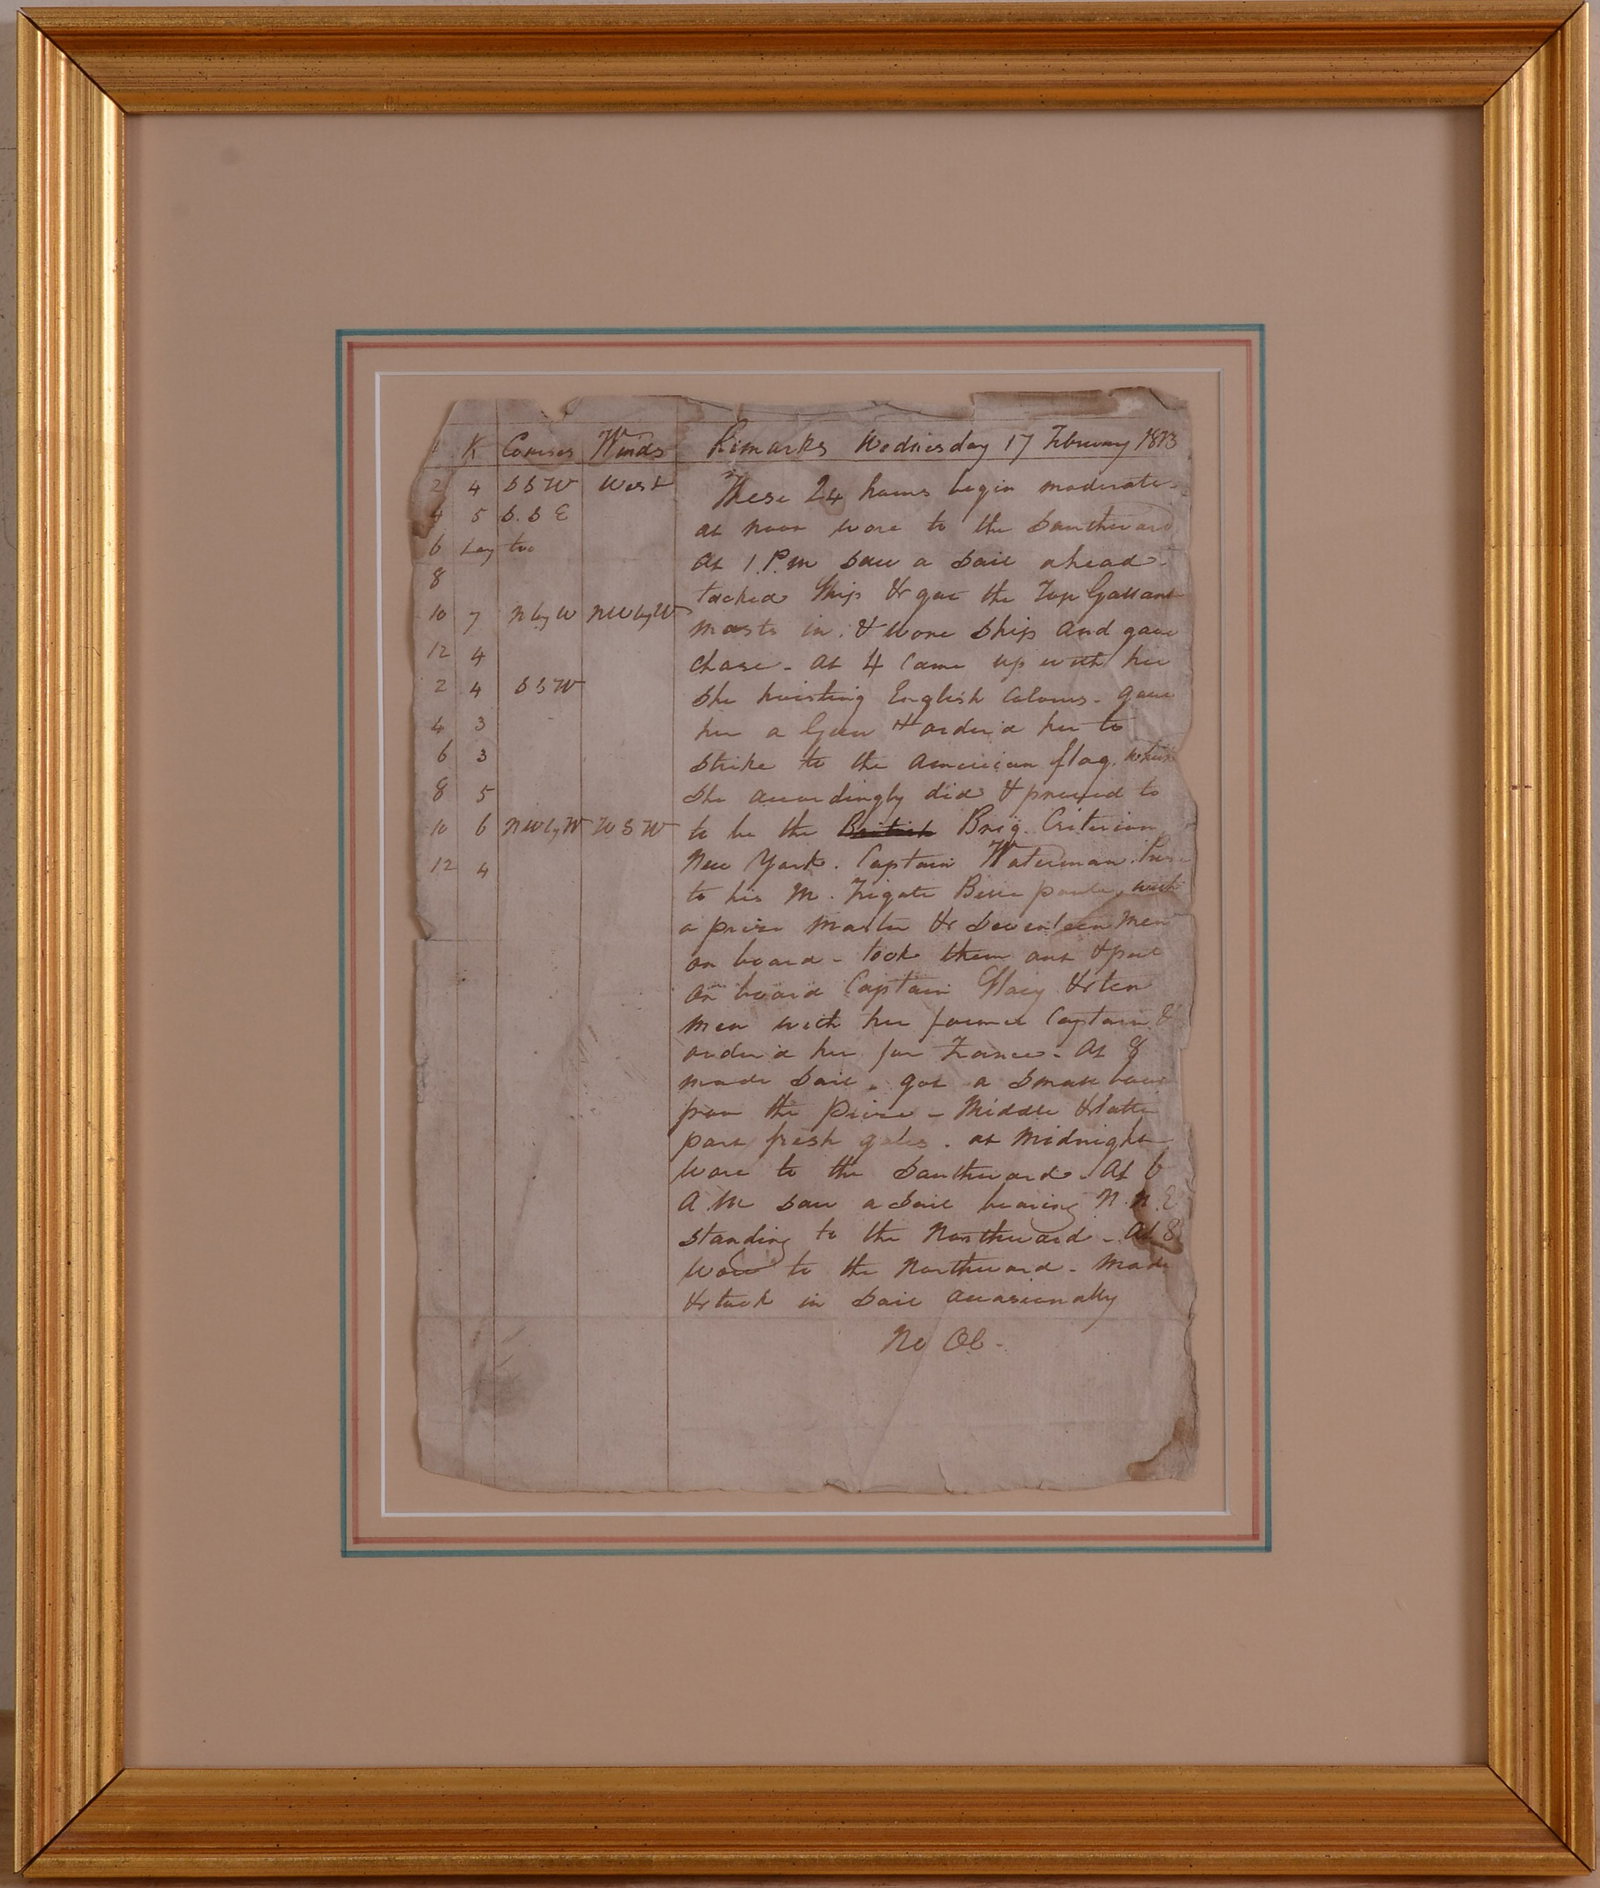 H K Courses Winds Remarks Wednesday 17 February 1813
2 4 SSW West These 24 hours begin moderate
4 5 S.SE at noon wore to the Southward
6 Lay too At 1 P.M saw a Sail ahead
8 tacked Ship & got the Top Gallant
10 7 N by W NW by W masts in. & wore Ship and gave
12 4 chase - at 4 Came up with her
2 4 SSW She hoisting English Colours - gave
4 3 her a Gun & order'd her to
6 3 Strike to the American flag. which
8 5 She accordingly did & proved to
10 6 NW by W WSW to be the British Brig. Criterion
12 4 New York. Captain Waterman.
to his M. Frigate Belle poule, with
a prize Master & Seventeen Men
on board - took them out & put
on board Captain Macy & ten
men with her former Captain &
order'd her for France - At 8
made Sail. got a Small boat
from the prize - Middle & latter
part fresh gales. at Midnight
wore to the Southward. At 6
A.M saw a Sail bearing N.N.E
standing to the Northward - At 8
wore to the Northward - Made
& took in Sail occasionally
No Ob -